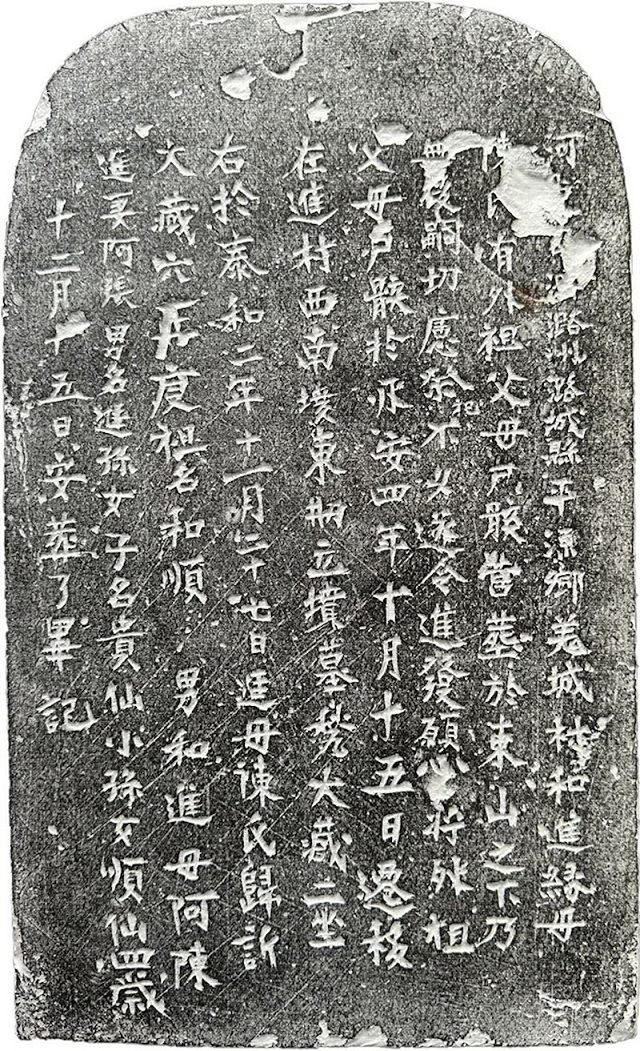 河潞州潞城縣平源鄉羌城村和進緣母
陳氏有外祖父母尸骸當葬於東山之下乃
無後嗣切慮祭祀不久遂令進發願心將外祖
父母尸骸於承安四年十月十五日遷移
在進村西南墳東側立墳墓甃大藏二坐
右於泰和二年十一月二十七日進母陳氏歸訢
大藏穴庚祖名和順男和進母阿陳
進妻阿張男名進孫女子名貴仙小孫女順仙四歲
十二月十五日安葬了畢記